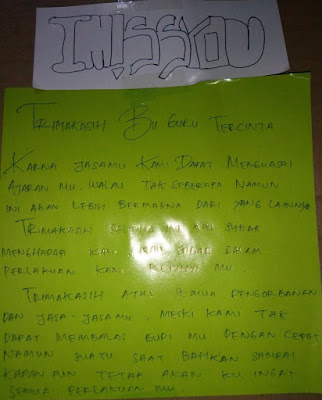 I MISS YOU
TRIMAKASIH BU GURU TERCINTA
KARNA JASAMU KAMI DAPAT MENGUASAI
AJARAN MU. WALAU TAK SEBERAPA NAMUN
INI AKAN LEBIH BERMAGNA DARI YANG LAINNYA
TRIMAKASIH SELAMA INI KAU SABAR
MENGHADAPI KAMI, SABAR DALAM
PERLAKUAN KAMI KEPADA MU.
TRIMAKASIH ATAS SEMUA PENGORBANAN
DAN JASA-JASAMU. MESKI KAMI TAK
DAPAT MEMBALAS BUDI MU DENGAN CEPAT
NAMUN SUATU SAAT BAHKAN SAMPAI
KAPANPUN TETAP AKAN KU INGAT
SEMUA PERLAKUAN MU.